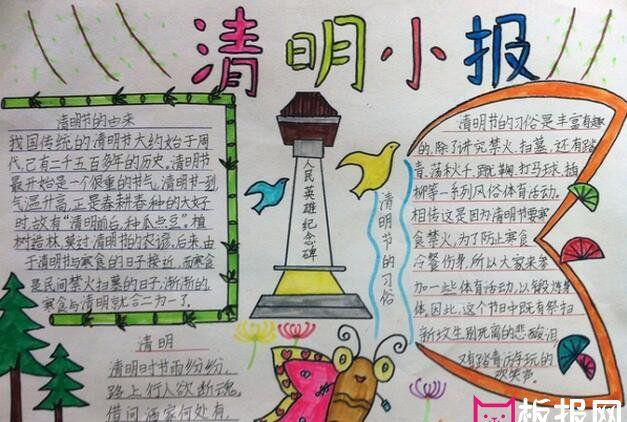 清明小报
清明节的由来
我国传统的清明节大约始于周
代,已有二千五百多年的历史。清明节
最开始是一个很重的节气,清明节一到,
气温升高,正是春耕春种的大好
时,故有“清明前后,种瓜点豆”。植
树造林,莫过清明节的农谚。后来,由
于清明节与寒食的日子接近,而寒食
是民间禁火扫墓的日子,渐渐的,
寒食与清明就合二为一了。
清明
清明时节雨纷纷,
路上行人欲断魂,
借问酒家何处有,
人民英雄纪念碑
清明节的习俗
清明节的习俗是丰富有趣
的,除了讲究禁火、扫墓,还有踏
青、荡秋千、蹴鞠、打马球、插
柳等一系列风俗体育活动。
相传这是因为清明节要寒
食禁火,为了防止寒食
冷餐伤身,所以大家来参
加一些体育活动,以锻炼身
体。因此,这个节日中既有祭扫
新坟生别死离的悲酸泪,
又有踏青游玩的
欢笑声。
板报网